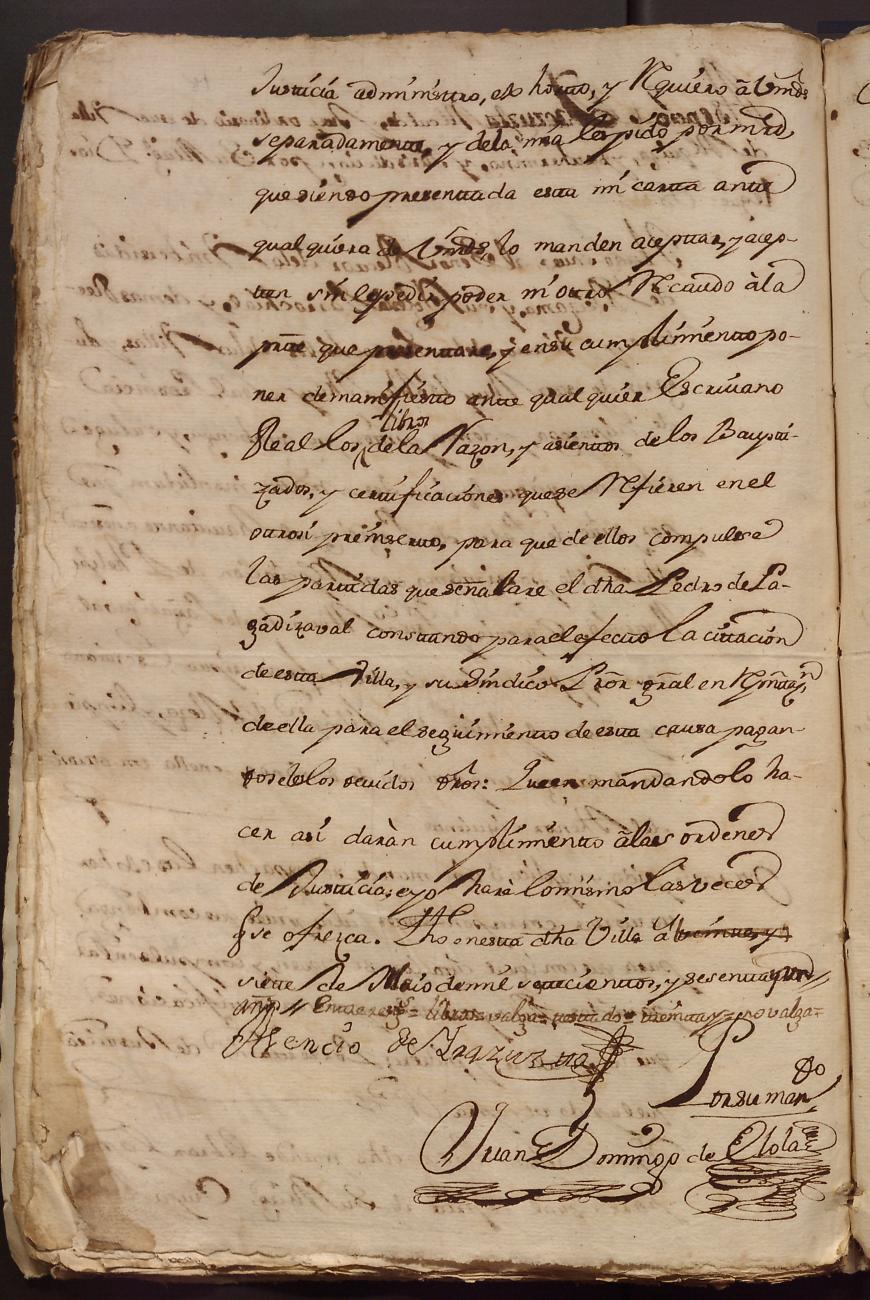 Justicia administro, exhorto, y Requiero à Vmds
separadamente, y dela mia les pido por mrd,
que siendo presentada esta mi carta ante
qual quiera de Vmds, lo manden aceptar, y acep-
ten sin le pedir poder ni otro Recaudo à la
prte que presentare, y en su cumplimiento po-
ner demanifiesto ante qual quier Escrivano
Real los libros de la Razon, y asientos de los Bauti-
zados, y certificaciones quese Refieren en el
otrosi preinserto, para que de ellos compulse
las partidas que señalare el dho Pedro de La-
gadizaval constando parael efecto la cittacion
de esta Villa, y su Sindico Pror gral en
de ella para el seguimiento de esta causa pagan-
dosdelos devidos dros: Que en mandandolo ha-
cer asi daràn cumplimiento àlas ordenes
de Justicia; e yo harè lo mismo las veces
qe se ofrezca. Dho en esta dha Villa à
siete de Maio demil setecientos, y sesenta y
años Entrerengs = libros = valga = testado = = no valga =
Asencio de
Por su man do
Juan Domingo de Olola